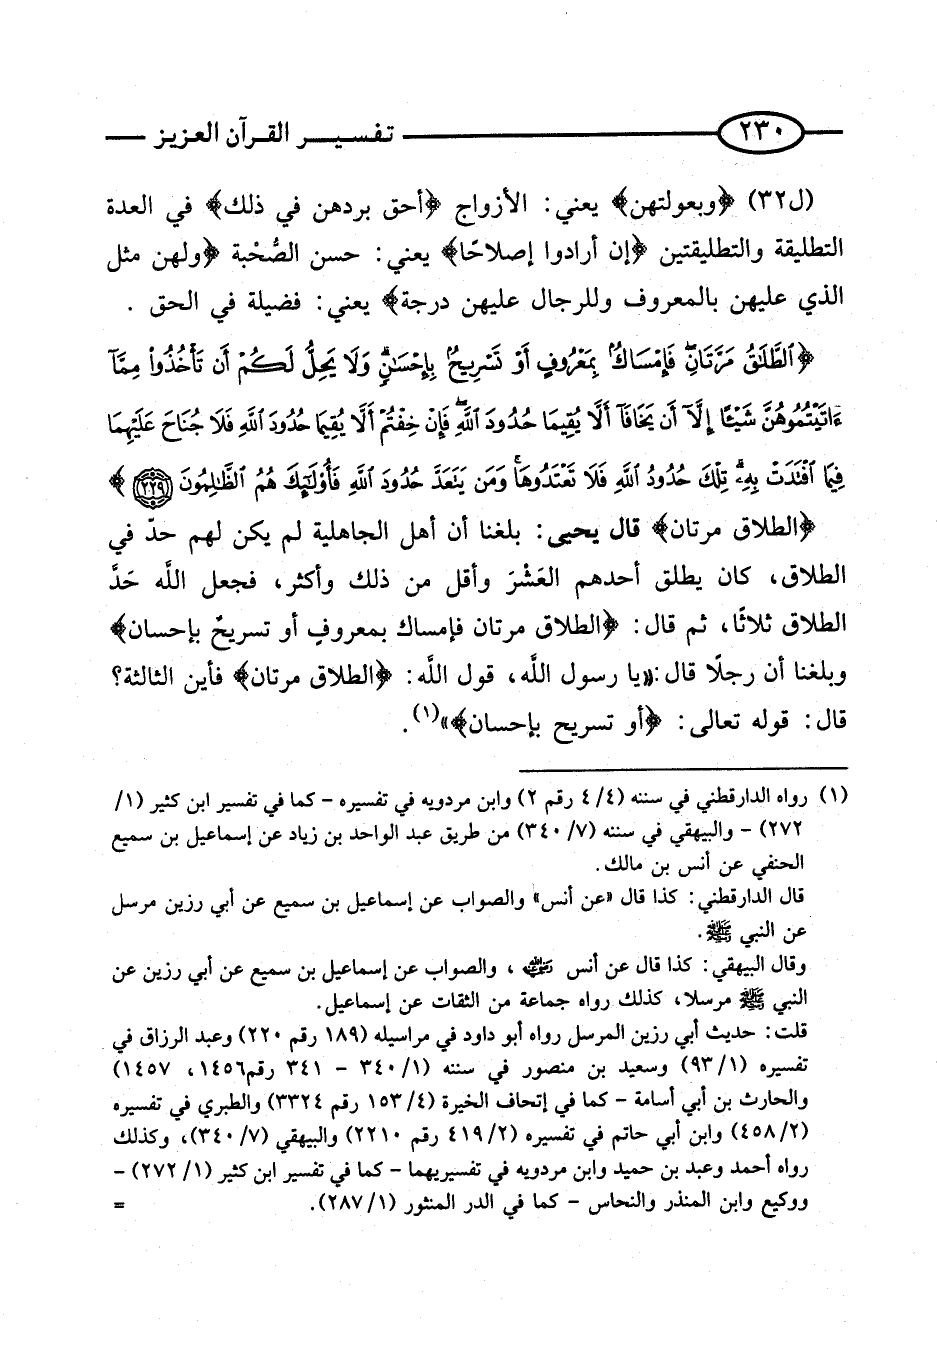 ٢٣٠ تفسير القرآن العزيز
(ل٣٢) ﴿وبعولتهن﴾ يعني: الأزواج ﴿أحق بردهن في ذلك﴾ في العدة
التطليقة والتطليقتين ﴿إن أرادوا إصلاحًا﴾ يعني: حسن الصُّحْبة ﴿ولهن مثل
الذي عليهن بالمعروف وللرجال عليهن درجة﴾ يعني: فضيلة في الحق .
﴿ٱلطَّلَٰقُ مَرَّتَانِۖ فَإِمْسَاكُۢ بِمَعْرُوفٍ أَوْ تَسْرِيحُۢ بِإِحْسَٰنٍۗ وَلَا يَحِلُّ لَكُمْ أَن تَأْخُذُوا۟ مِمَّآ
ءَاتَيْتُمُوهُنَّ شَيْـًٔا إِلَّآ أَن يَخَافَآ أَلَّا يُقِيمَا حُدُودَ ٱللَّهِۖ فَإِنْ خِفْتُمْ أَلَّا يُقِيمَا حُدُودَ ٱللَّهِ فَلَا جُنَاحَ عَلَيْهِمَا
فِيمَا ٱفْتَدَتْ بِهِۦۗ تِلْكَ حُدُودُ ٱللَّهِ فَلَا تَعْتَدُوهَاۚ وَمَن يَتَعَدَّ حُدُودَ ٱللَّهِ فَأُو۟لَٰٓئِكَ هُمُ ٱلظَّٰلِمُونَ ٢٢٩﴾
﴿الطلاق مرتان﴾ قال يحيى: بلغنا أن أهل الجاهلية لم يكن لهم حدّ في
الطلاق، كان يطلق أحدهم العَشْرَ وأقل من ذلك وأكثر، فجعل اللَّه حَدَّ
الطلاق ثلاثًا، ثم قال: ﴿الطلاق مرتان فإمساك بمعروفٍ أو تسريحٌ بإحسان﴾
وبلغنا أن رجلًا قال: «يا رسول اللَّه، قول اللَّه: ﴿الطلاق مرتان﴾ فأين الثالثة؟
قال: قوله تعالى: ﴿أو تسريح بإحسان﴾»(١).
(١) رواه الدارقطني في سننه (٤/٤ رقم ٢) وابن مردويه في تفسيره – كما في تفسير ابن كثير (١/
٢٧٢) – والبيهقي في سننه (٧/ ٣٤٠) من طريق عبد الواحد بن زياد عن إسماعيل بن سميع
الحنفي عن أنس بن مالك.
قال الدارقطني: كذا قال «عن أنس» والصواب عن إسماعيل بن سميع عن أبي رزين مرسل
عن النبي ﷺ.
وقال البيهقي: كذا قال عن أنس رضي الله عنه، والصواب عن إسماعيل بن سميع عن أبي رزين عن
النبي ﷺ مرسلا، كذلك رواه جماعة من الثقات عن إسماعيل.
قلت: حديث أبي رزين المرسل رواه أبو داود في مراسيله (١٨٩ رقم ٢٢٠) وعبد الرزاق في
تفسيره (١/ ٩٣) وسعيد بن منصور في سننه (١/ ٣٤٠ – ٣٤١ رقم١٤٥٦، ١٤٥٧)
والحارث بن أبي أسامة – كما في إتحاف الخيرة (٤/ ١٥٣ رقم ٣٣٢٤) والطبري في تفسيره
(٢/ ٤٥٨) وابن أبي حاتم في تفسيره (٢/ ٤١٩ رقم ٢٢١٠) والبيهقي (٧/ ٣٤٠)، وكذلك
رواه أحمد وعبد بن حميد وابن مردويه في تفسيريهما – كما في تفسير ابن كثير (١/ ٢٧٢) –
ووكيع وابن المنذر والنحاس – كما في الدر المنثور (١/ ٢٨٧). =